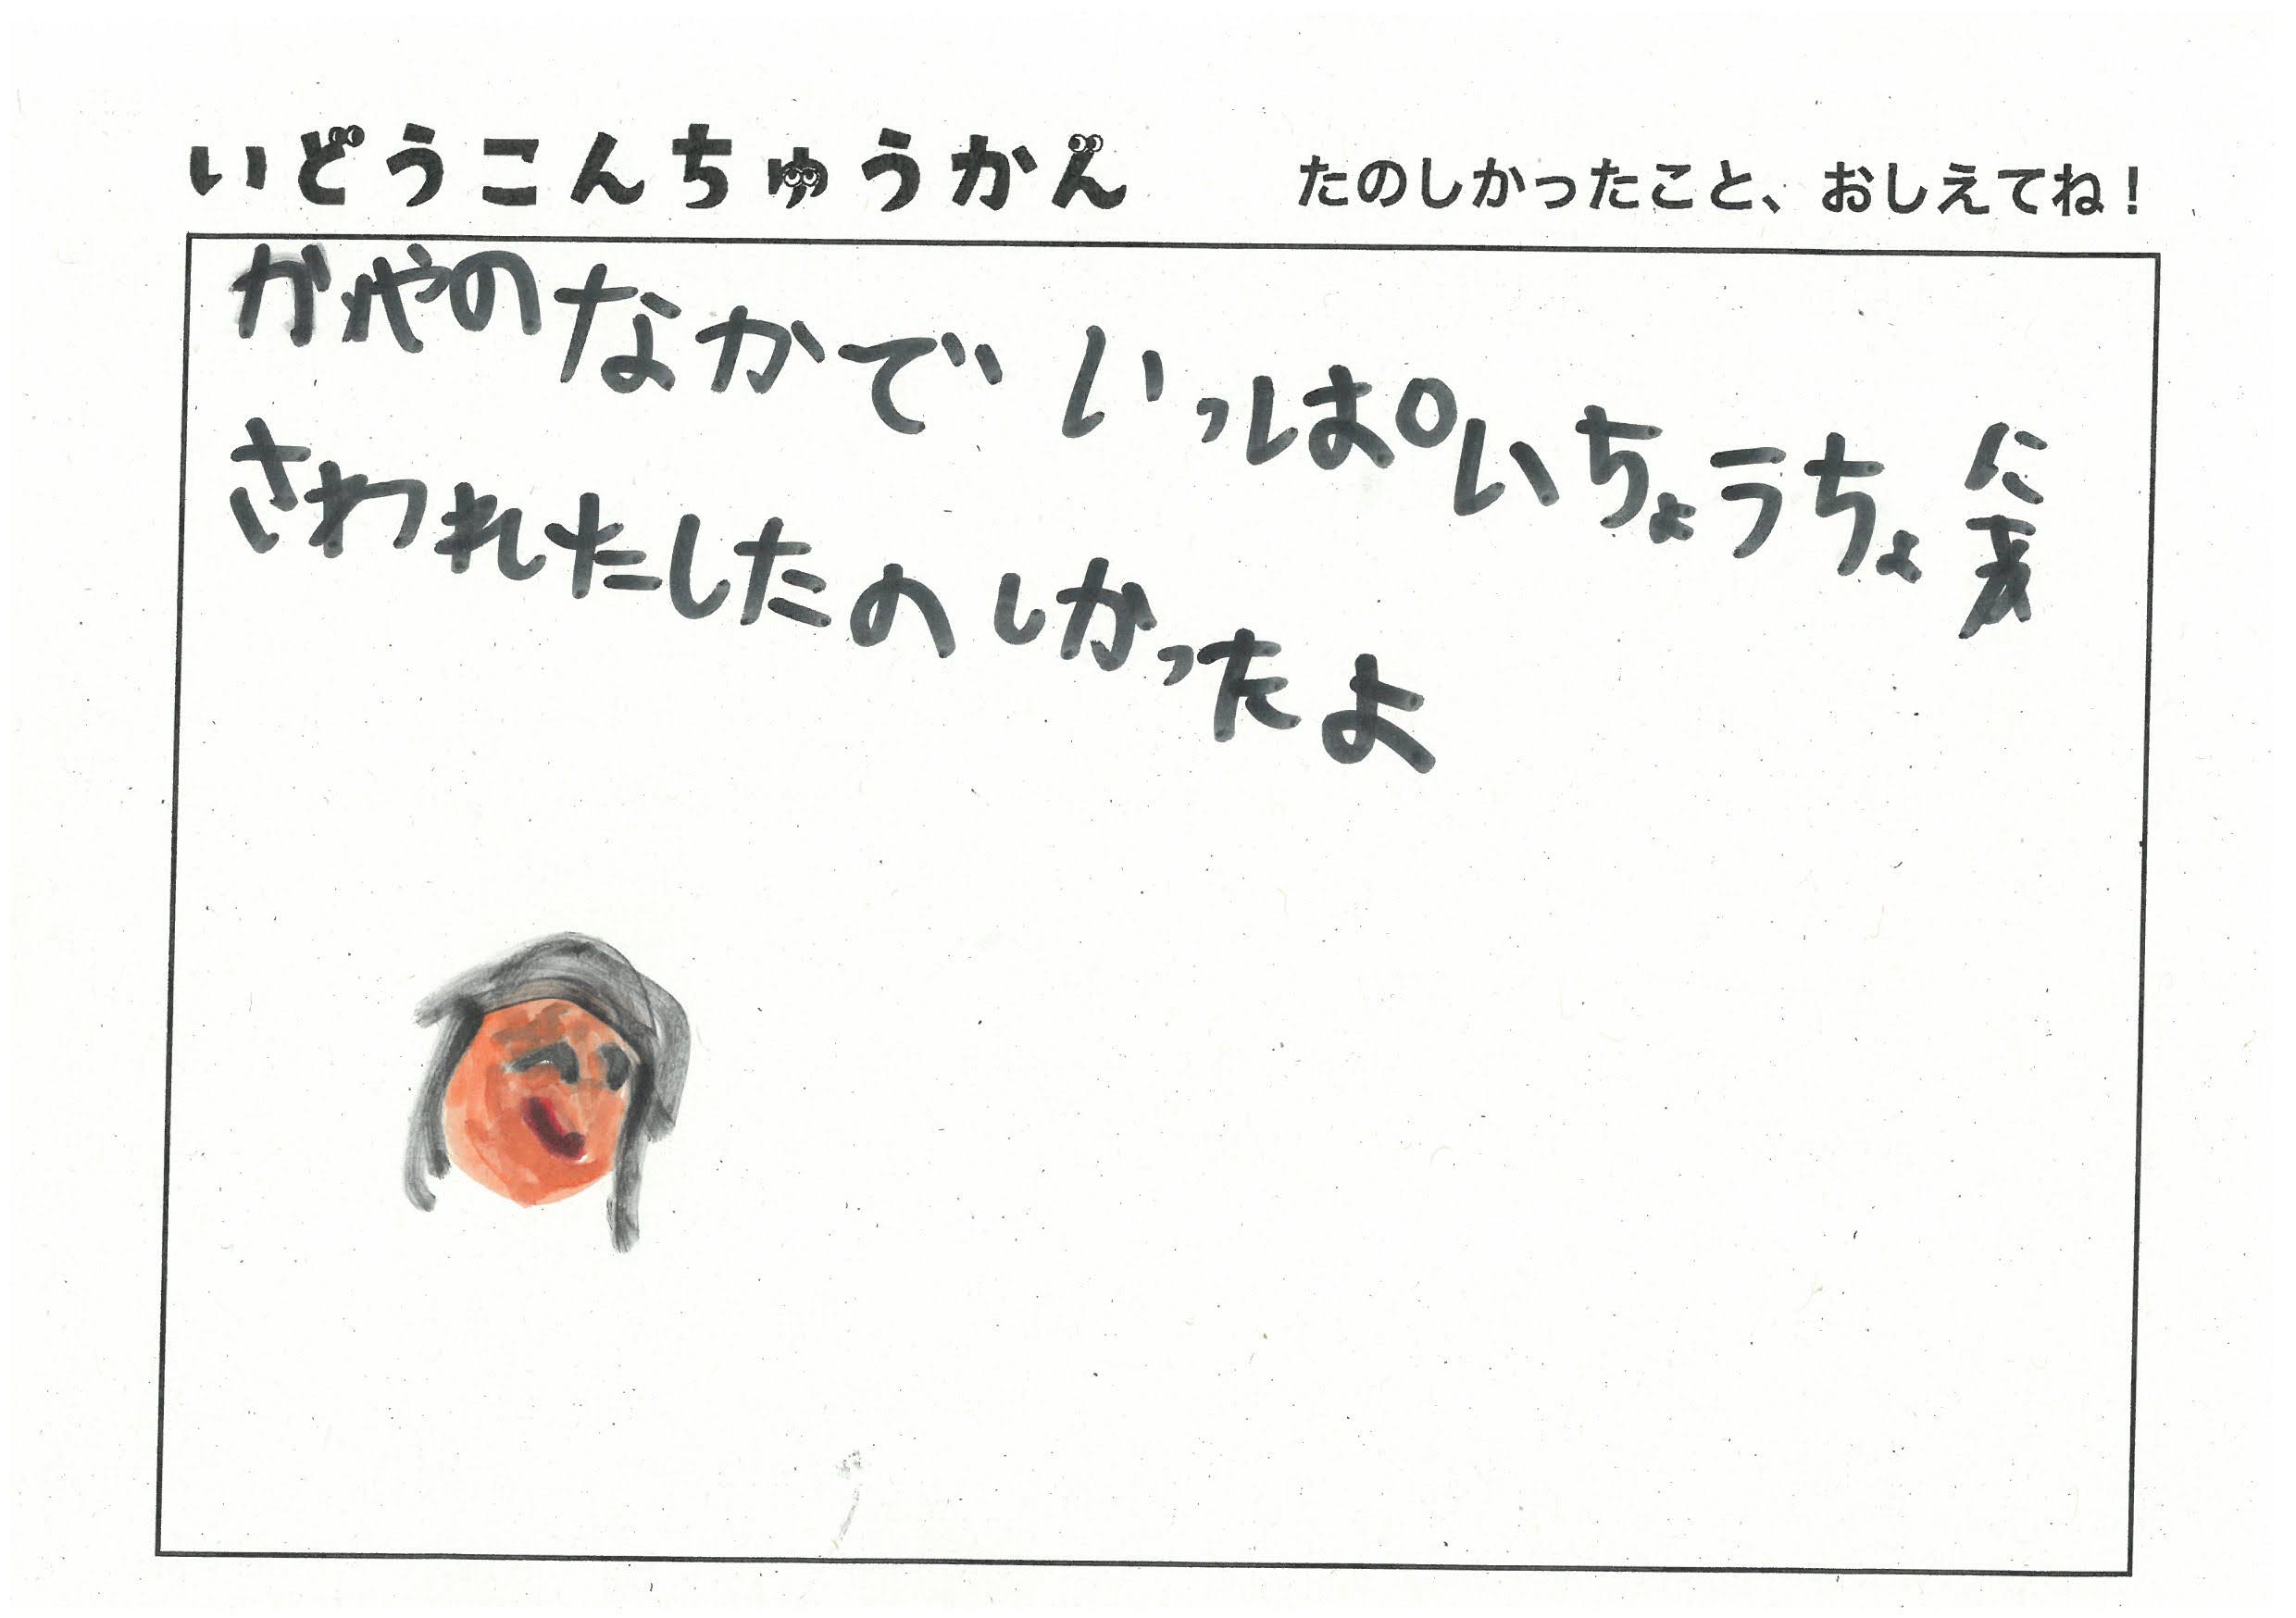 いどうこんちゅうかん たのしかったこと、おしえてね！
かやのなかで いっぱいちょうちょに
さわれたしたのしかったよ